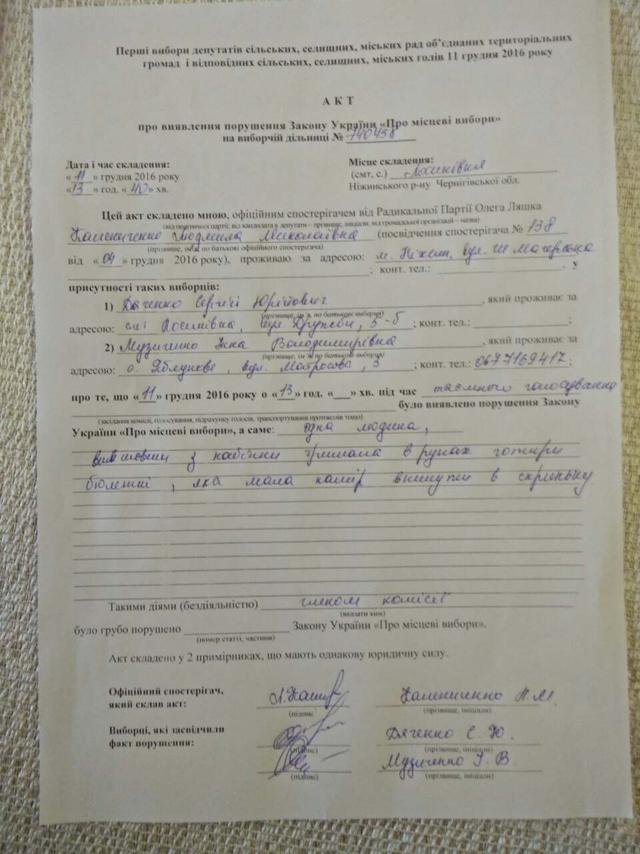 Перші вибори депутатів сільських, селищних, міських рад об'єднаних територіальних
громад і відповідних сільських, селищних, міських голів 11 грудня 2016 року
А К Т
про виявлення порушення Закону України «Про місцеві вибори»
на виборчій дільниці № 740438
Дата і час складення:
« 11 » грудня 2016 року
« 13 » год. « 40 » хв.
Місце складення:
(смт, с.) Лосинівка
Ніжинського р-ну Чернігівської обл.
Цей акт складено мною, офіційним спостерігачем від Радикальної Партії Олега Ляшка
(від політичної партії; від кандидата в депутати – прізвище, ініціали; від громадської організації – назва)
Людмила Миколаївна (посвідчення спостерігача № 138
(прізвище, ім'я, по батькові офіційного спостерігача)
від « 09 » грудня 2016 року), проживаю за адресою: м. Ніжин, вул.
; конт. тел.: . У
присутності таких виборців:
1) Дяченко Сергій Юрійович , який проживає за
(прізвище, ім'я, по батькові виборця)
адресою: смт Лосинівка, вул Дружби, 5-б ; конт. тел.: ;
2) Музиченко Інна Володимирівна , який проживає за
(прізвище, ім'я, по батькові виборця)
адресою: с. Яблунове, вул. Матросова, 3 ; конт. тел.: 0677169417 ;
про те, що « 11 » грудня 2016 року о « 13 » год. « » хв. під час таємного голосування
(засідання комісії, голосування, підрахунку голосів, транспортування протоколів тощо)
було виявлено порушення Закону
України «Про місцеві вибори», а саме: одна людина,
вийшовши з кабінки тримала в руках чотири
бюлетні, яка мала намір вкинути в скриньку
Такими діями (бездіяльністю) членом комісії
(вказати ким)
було грубо порушено Закону України «Про місцеві вибори».
(номер статті, частини)
Акт складено у 2 примірниках, що мають однакову юридичну силу.
Офіційний спостерігач,
який склав акт:
(підпис) (прізвище, ініціали)
Виборці, які засвідчили
факт порушення:
Дяченко С. Ю.
(підпис) (прізвище, ініціали)
Музиченко І. В
(підпис) (прізвище, ініціали)